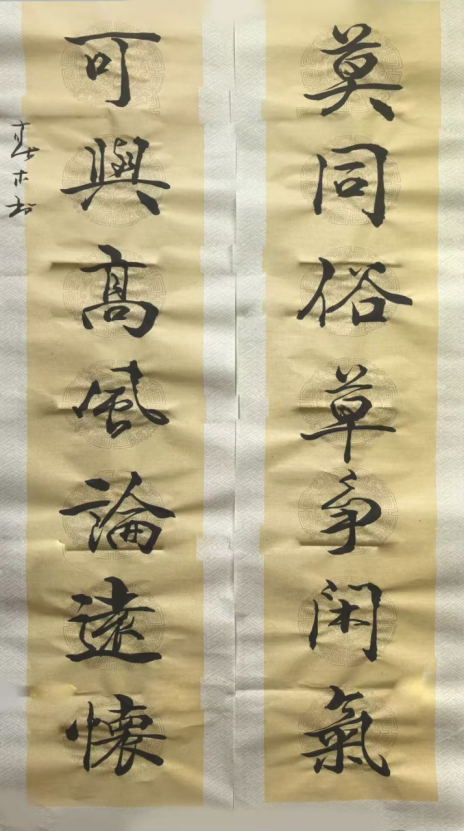 莫同俗草争闲氣
可與高風論遠懷